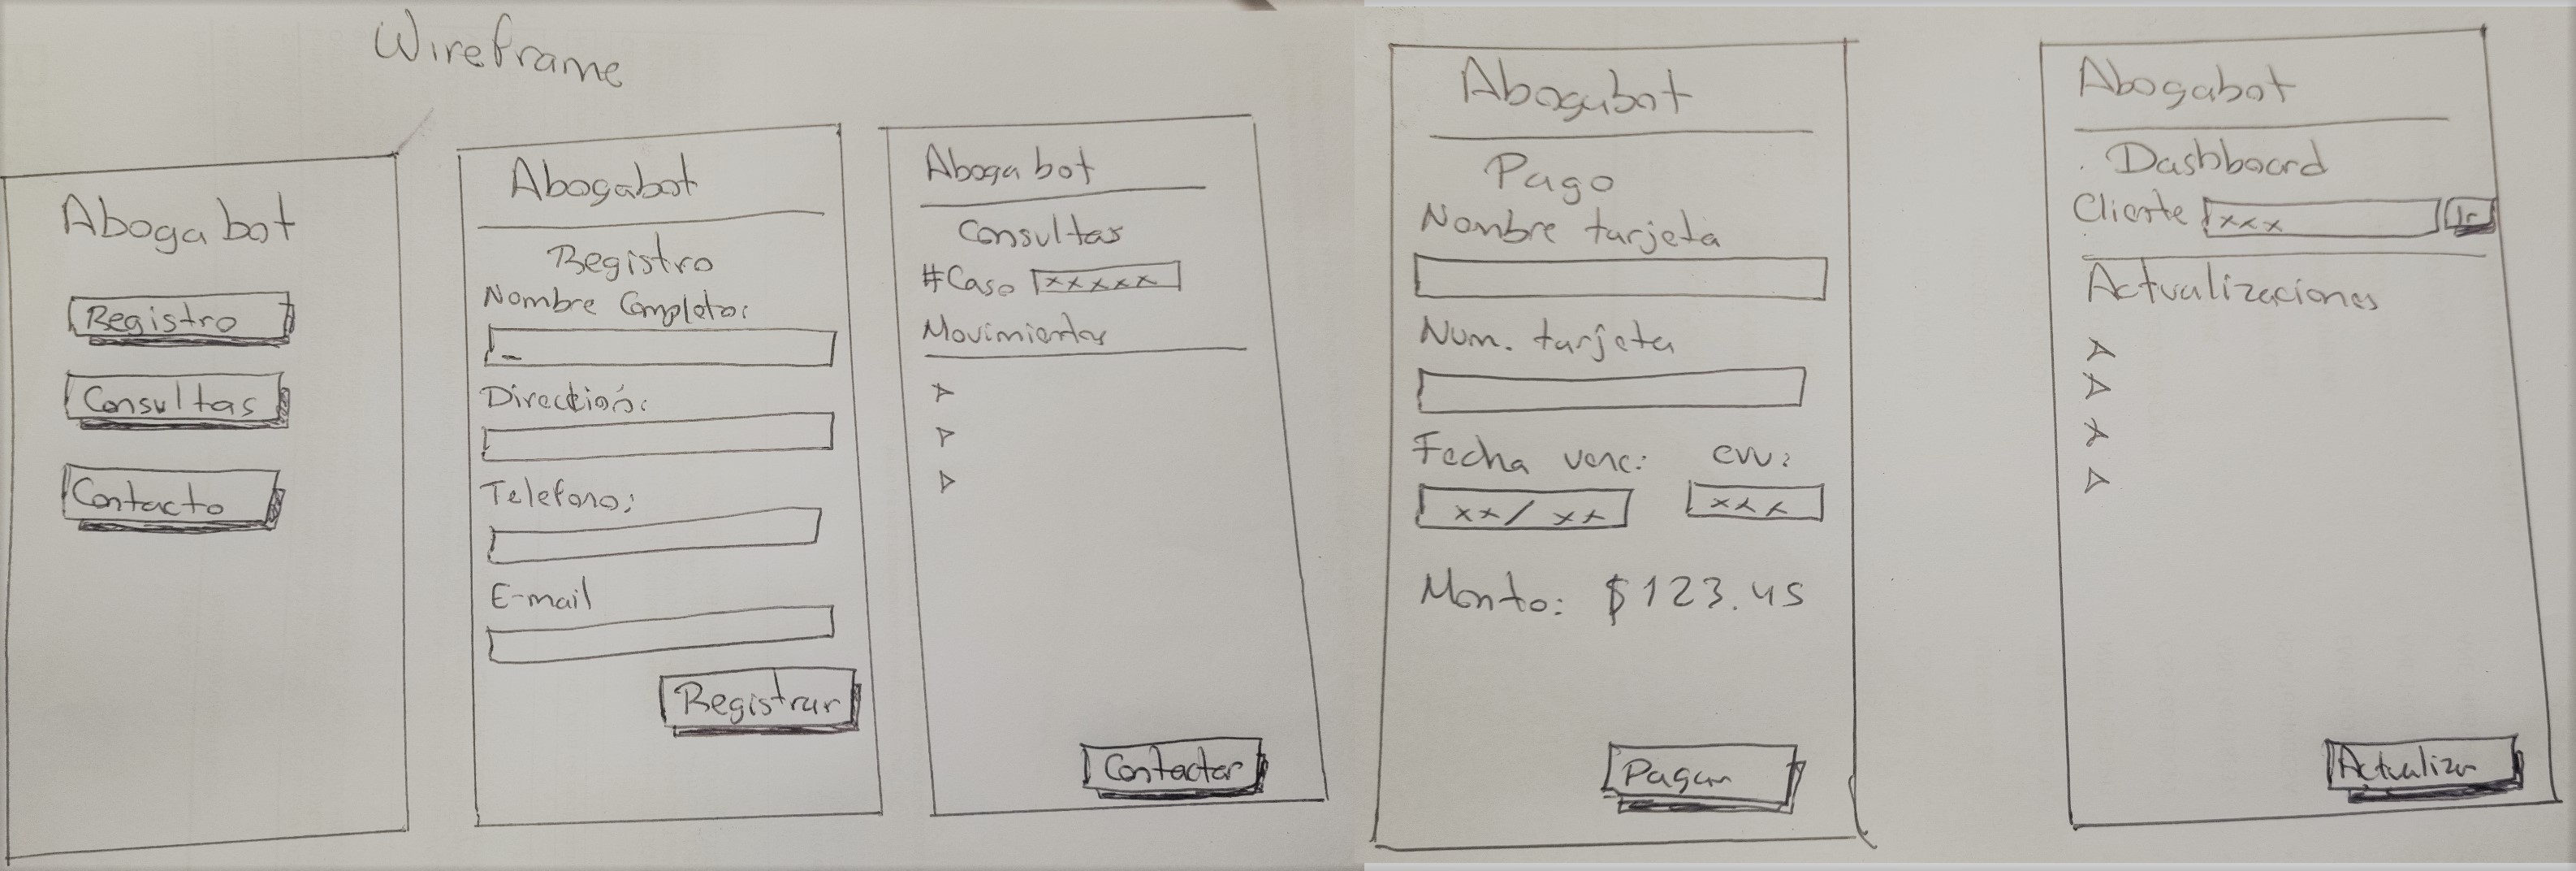 Wireframe
Abogabot
Registro
Consultas
Contacto
Abogabot
Registro
Nombre Completo:
Dirección:
Telefono:
E-mail
Registrar
Abogabot
Consultas
#Caso xxxxx
Movimientos
Contactar
Abogabot
Pago
Nombre tarjeta
Num. tarjeta
Fecha venc: cvv:
xx/xx xxx
Monto: $123.45
Pagar
Abogabot
Dashboard
Cliente xxx Ir
Actualizaciones
Actualizar